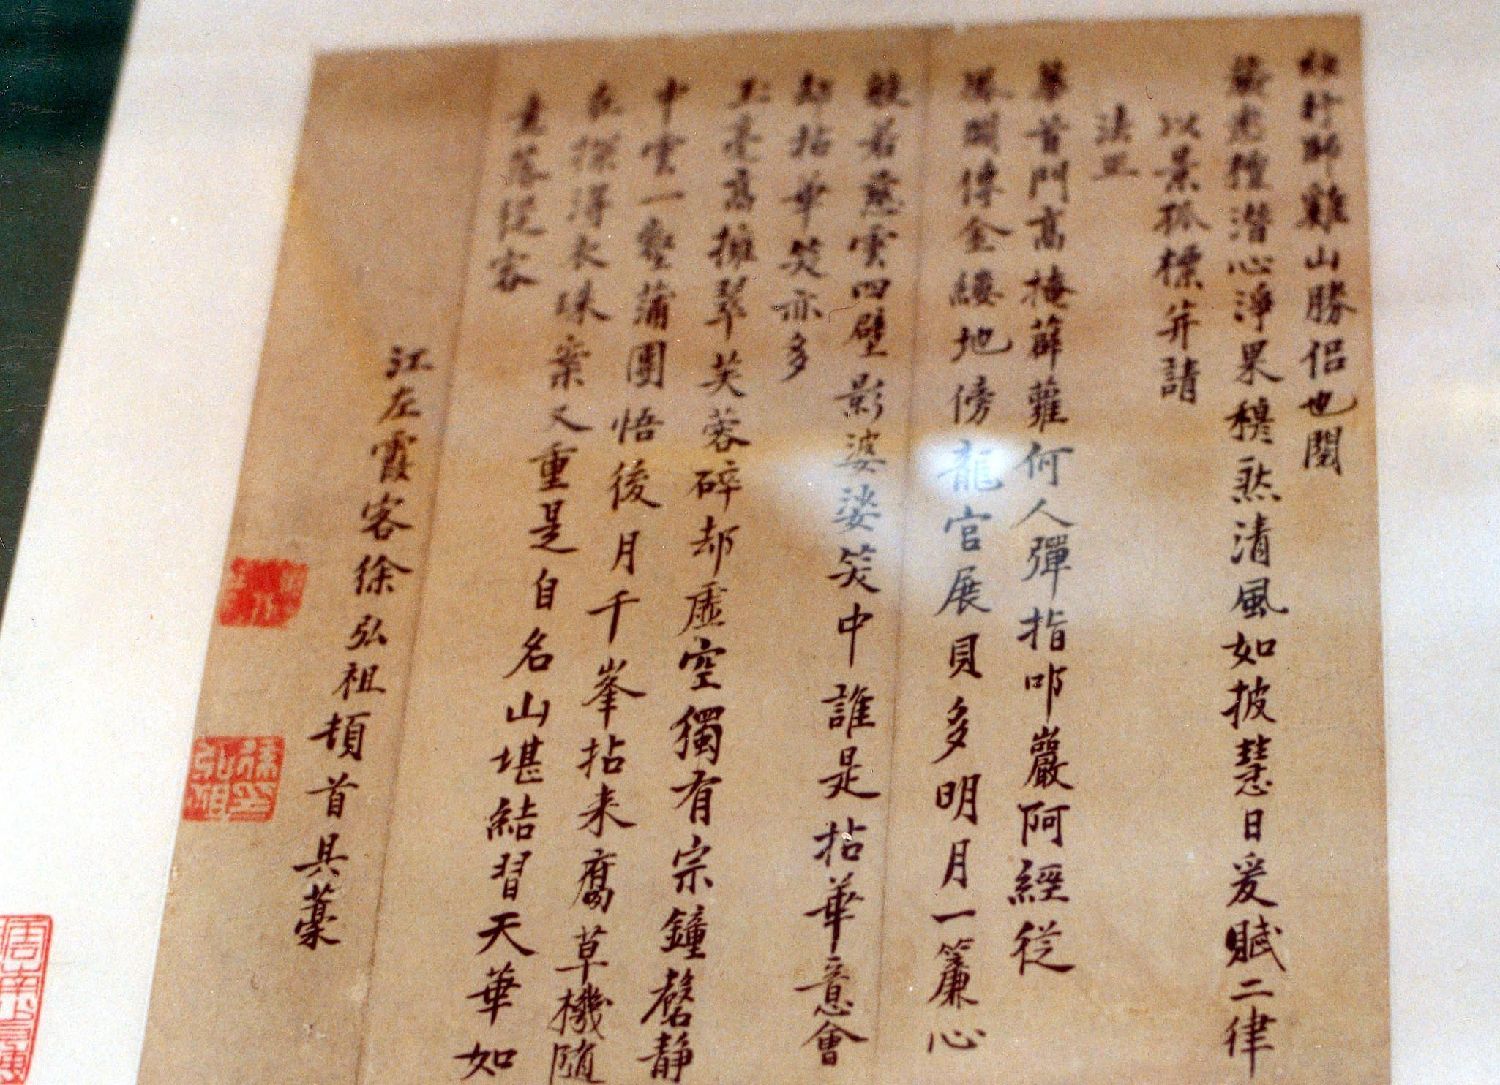 妙行師雞山勝侶也閱
藏悉檀潛心淨果穆然清風如披慧日爰賦二律
以景孤標并請
法正
華首門高掩薜蘿何人彈指叩巖阿經從
鳳闕傳金縷地傍龍宮展貝多明月一簾心
般若慈雲四壁影婆娑笑中誰是拈華意會
却拈華笑亦多
玉毫高擁翠芙蓉碎却虛空獨有宗鐘磬靜
中雲一壑蒲團悟後月千峯拈来腐草機隨
在探得衣珠案又重是自名山堪結習天華如
意落從容
江左霞客徐弘祖頓首具藁
徐弘祖印